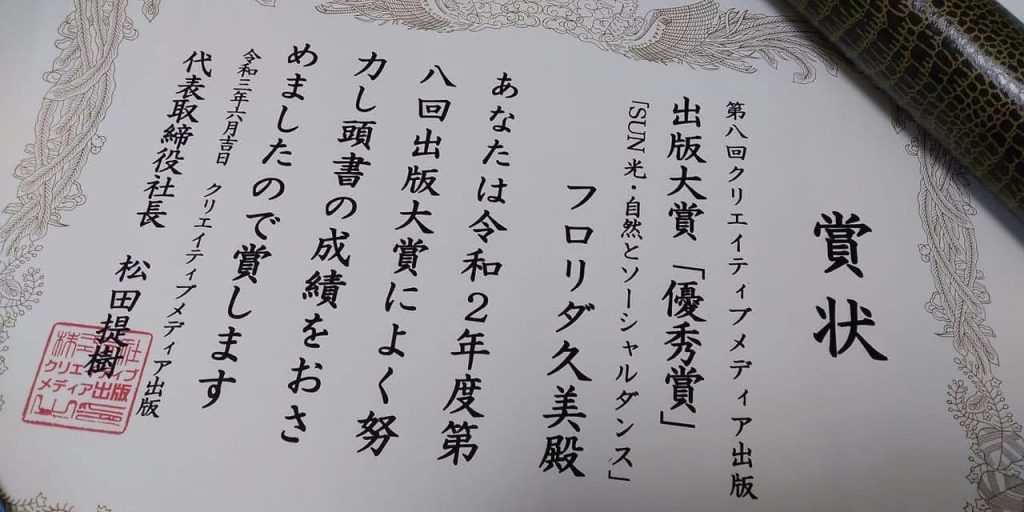 賞状
第八回クリエイティブメディア出版
出版大賞「優秀賞」
「SUN 光・自然とソーシャルダンス」
フロリダ久美殿
あなたは令和2年度第
八回出版大賞によく努
力し頭書の成績をおさ
めましたので賞します
令和三年六月吉日
クリエイティブメディア出版
代表取締役社長 松田提樹
クリエイティブ
メディア出版